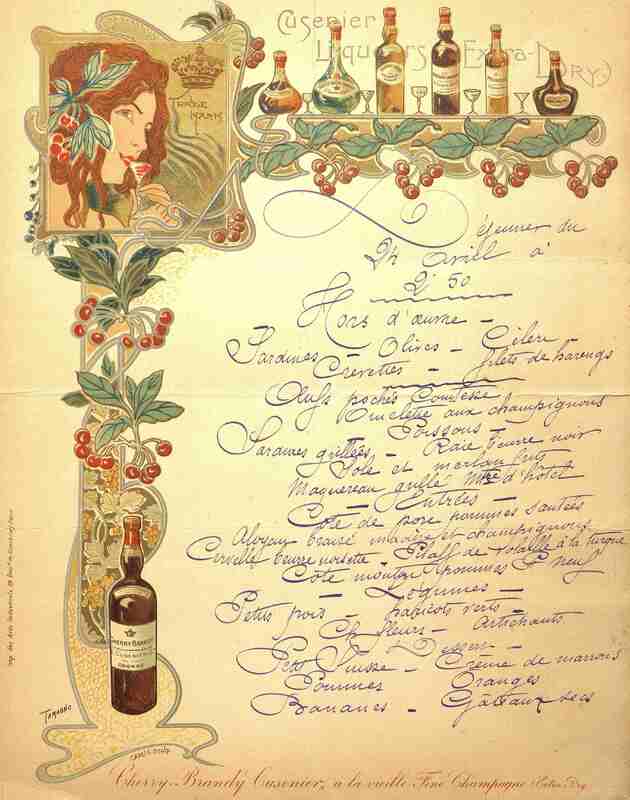 Cusenier
Liqueurs Extra-Dry
Trade
Mark
Déjeuner du
24 Avril à
2f 50
Hors d'œuvre —
Sardines — Olives — Céleri —
Crevettes — filets de harengs
Œufs pochés Comtesse
Omelette aux champignons
Poissons —
Sardines grillées — Raie beurre noir
Sole et merlan frits
Maquereau grillé Mtre d'hôtel
— Entrées —
Côte de porc pommes sautées
Aloyau braisé madère et champignons
Cervelle beurre noisette — Pilaff de volaille à la turque
Côte mouton pommes P. neuf
— Légumes —
Petits pois — haricots verts —
Ch. fleurs — Artichauts
— Dessert —
Petit Suisse — Crème de marrons
Pommes Oranges
Bananes — Gâteaux secs
Cherry Brandy
Cusenier
Cognac
Tamagno
Cherry-Brandy Cusenier, à la vieille Fine Champagne Extra Dry
Imp. des Arts Industriels